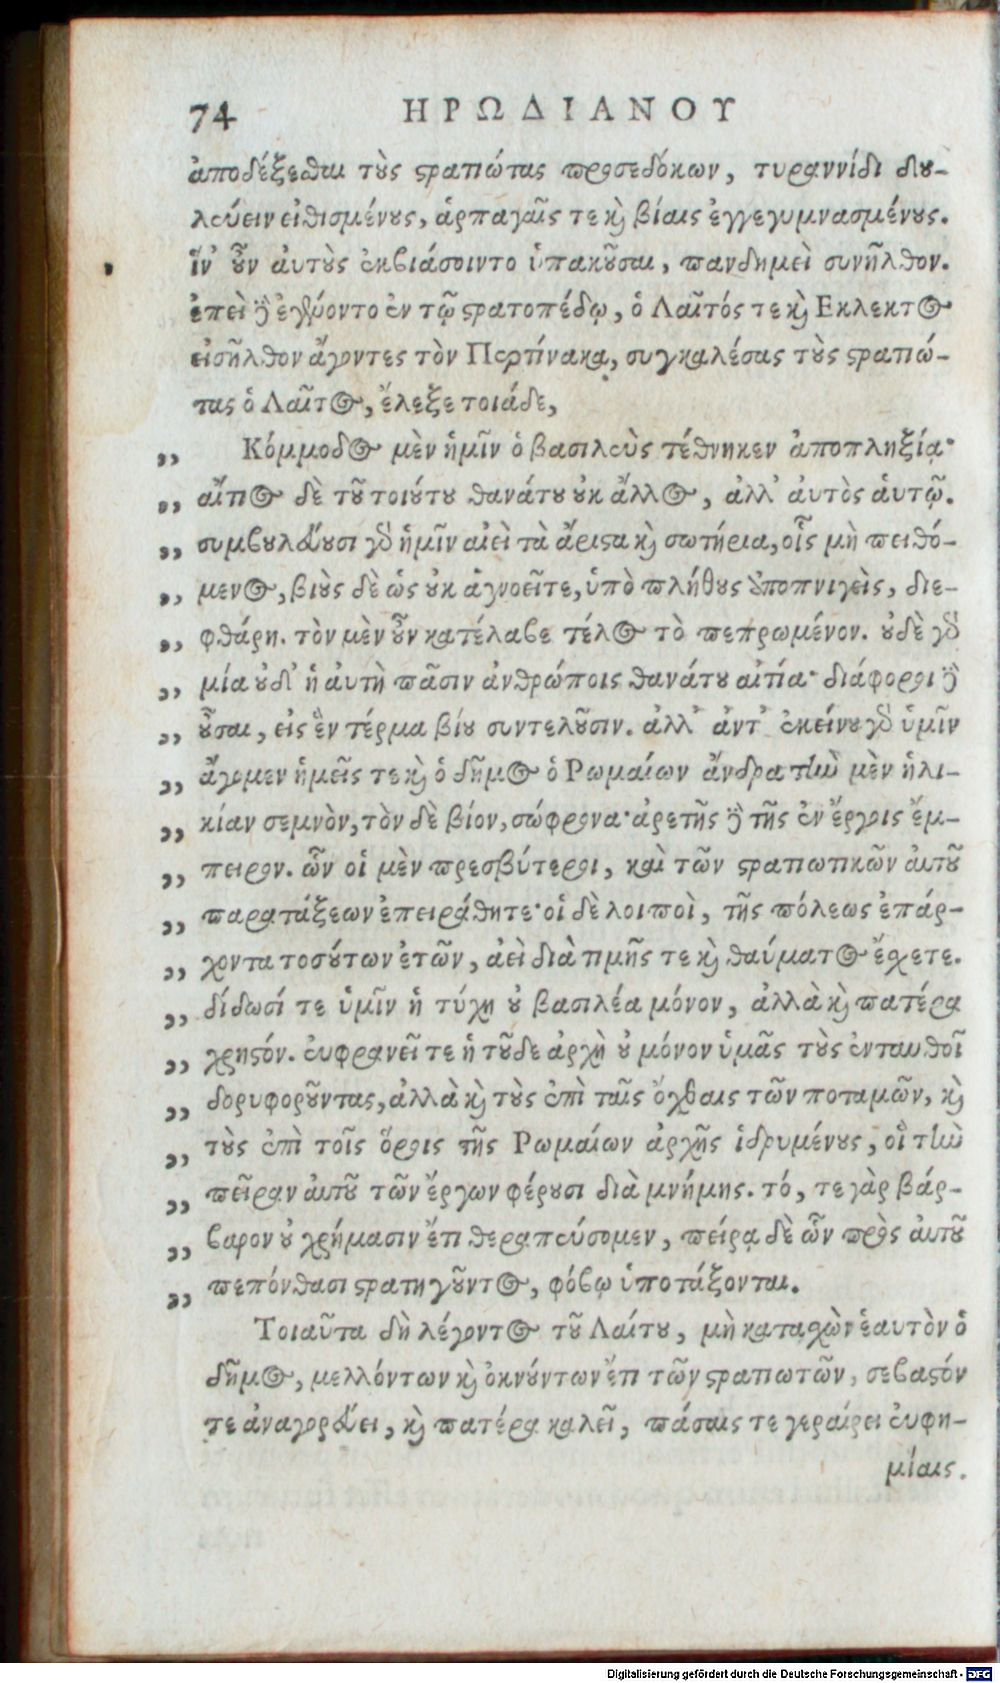 74 ΗΡΩΔΙΑΝΟΥ
ἀποδέξεσθαι τοὺς στρατιώτας προσεδόκων, τυραννίδι δου-
λεύειν εἰθισμένους, ἁρπαγαῖς τε καὶ βίαις ἐγγεγυμνασμένους.
ἵν' οὖν αὐτοὺς ἐκβιάσοιντο ὑπακοῦσαι, πανδημεὶ συνῆλθον.
ἐπεὶ δὲ ἐγένοντο ἐν τῷ στρατοπέδῳ, ὁ Λαῖτός τε καὶ Εκλεκτος
εἰσῆλθον ἄγοντες τὸν Περτίνακα, συγκαλέσας τοὺς στρατιώ-
τας ὁ Λαῖτος, ἔλεξε τοιάδε,
„ Κόμμοδος μὲν ἡμῖν ὁ βασιλεὺς τέθνηκεν ἀποπληξίᾳ·
„ αἴτιος δὲ τοῦ τοιούτου θανάτου οὐκ ἄλλος, ἀλλ' αὐτὸς αὑτῷ.
„ συμβουλεύουσι γὰρ ἡμῖν αἰεὶ τὰ ἄριστα καὶ σωτήρια, οἷς μὴ πειθό-
„ μενος, βιοὺς δὲ ὡς οὐκ ἀγνοεῖτε, ὑπὸ πλήθους ἀποπνιγεὶς, διε-
„ φθάρη. τὸν μὲν οὖν κατέλαβε τέλος τὸ πεπρωμένον. οὐδὲ γὰρ
„ μία οὐδ' ἡ αὐτὴ πᾶσιν ἀνθρώποις θανάτου αἰτία· διάφοροι δὲ
„ οὖσαι, εἰς ἓν τέρμα βίου συντελοῦσιν. ἀλλ' ἀντ' ἐκείνου γὰρ ὑμῖν
„ ἄγομεν ἡμεῖς τε καὶ ὁ δῆμος ὁ Ρωμαίων ἄνδρα τὴν μὲν ἡλι-
„ κίαν σεμνὸν, τὸν δὲ βίον, σώφρονα· ἀρετῆς δὲ τῆς ἐν ἔργοις ἔμ-
„ πειρον. ὧν οἱ μὲν πρεσβύτεροι, καὶ τῶν στρατιωτικῶν αὐτοῦ
„ παρατάξεων ἐπειράθητε· οἱ δὲ λοιποὶ, τῆς πόλεως ἐπάρ-
„ χοντα τοσούτων ἐτῶν, ἀεὶ διὰ τιμῆς τε καὶ θαύματος ἔχετε.
„ δίδωσί τε ὑμῖν ἡ τύχη οὐ βασιλέα μόνον, ἀλλὰ καὶ πατέρα
„ χρηστόν. εὐφρανεῖ τε ἡ τοῦδε ἀρχὴ οὐ μόνον ὑμᾶς τοὺς ἐνταυθοῖ
„ δορυφοροῦντας, ἀλλὰ καὶ τοὺς ἐπὶ ταῖς ὄχθαις τῶν ποταμῶν, καὶ
„ τοὺς ἐπὶ τοῖς ὅροις τῆς Ρωμαίων ἀρχῆς ἱδρυμένους, οἳ τὴν
„ πεῖραν αὐτοῦ τῶν ἔργων φέρουσι διὰ μνήμης. τό, τε γὰρ βάρ-
„ βαρον οὐ χρήμασιν ἔτι θεραπεύσομεν, πείρᾳ δὲ ὧν πρὸς αὐτοῦ
„ πεπόνθασι στρατηγοῦντος, φόβῳ ὑποτάξονται.
Τοιαῦτα δὴ λέγοντος τοῦ Λαίτου, μὴ κατασχὼν ἑαυτὸν ὁ
δῆμος, μελλόντων καὶ ὀκνούντων ἔτι τῶν στρατιωτῶν, σεβαστόν
τε ἀναγορεύει, καὶ πατέρα καλεῖ, πάσαις τε γεραίρει εὐφη-
μίαις.
Digitalisierung gefördert durch die Deutsche Forschungsgemeinschaft - DFG